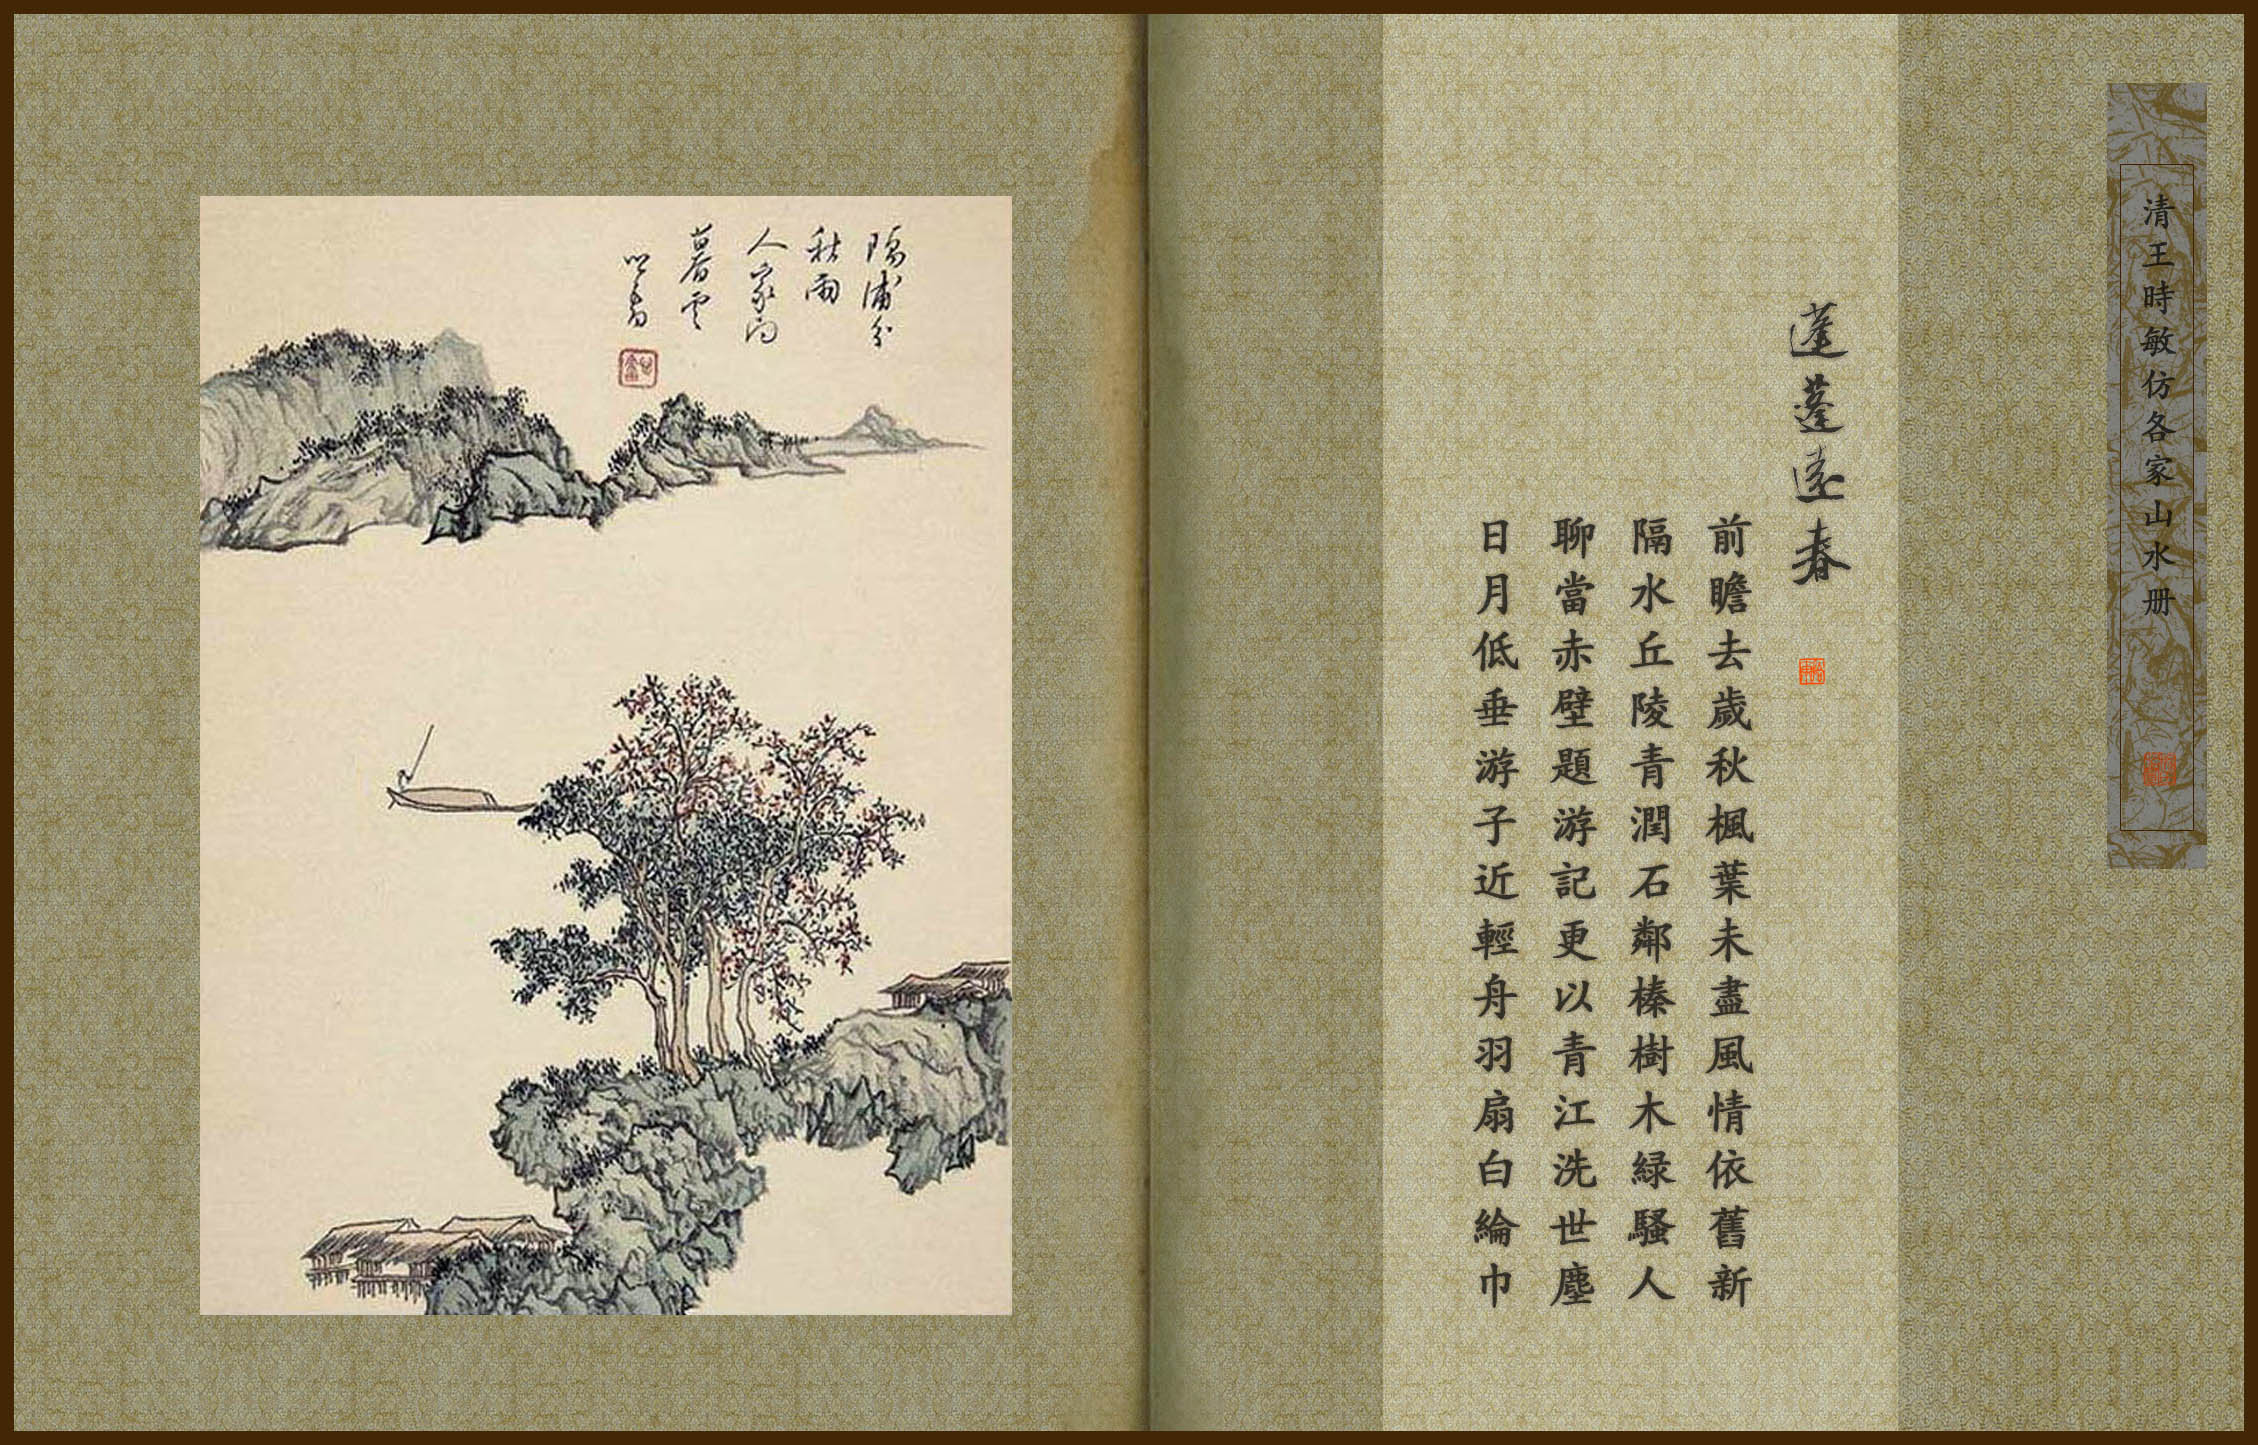 清王時敏仿各家山水册
蓬蓬遠春
前瞻去歲秋楓葉未盡風情依舊新
隔水丘陵青潤石鄰榛樹木緑騷人
聊當赤壁題游記更以青江洗世塵
日月低垂游子近輕舟羽扇白綸巾
隔浦分
秋雨
人家向
暮雲
心畬